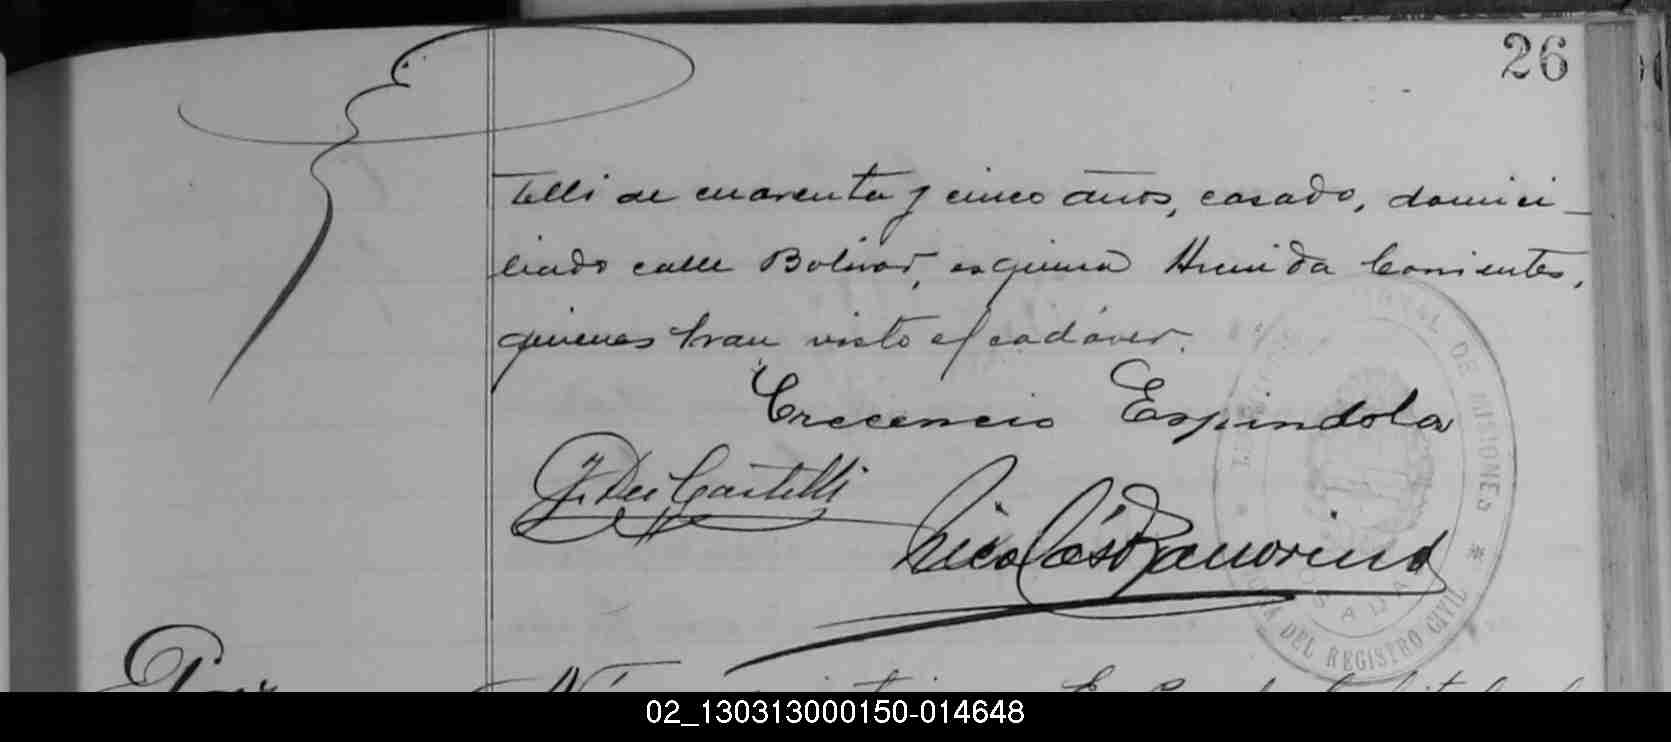 26
telli de cuarenta y cinco años, casado, domici-
liado calle Bolivar, esquina Avenida Corrientes,
quienes han visto el cadáver.
Crecencio Espindola
J. Dei Castelli
Nicolás
DE MISIONES
DEL REGISTRO CIVIL
02_130313000150-014648